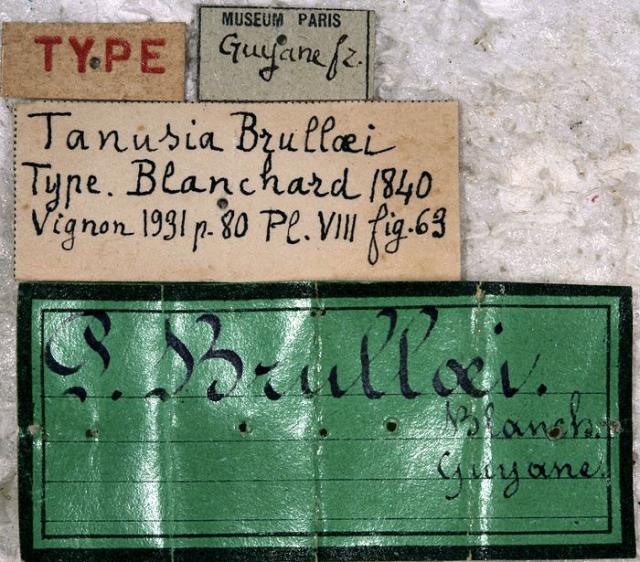 TYPE
MUSEUM PARIS
Guyane fz.
Tanusia Brullæi
Type. Blanchard 1840
Vignon 1931 p. 80 Pl. VIII fig. 63
P. Brullæi.
Blanch.
Guyane.